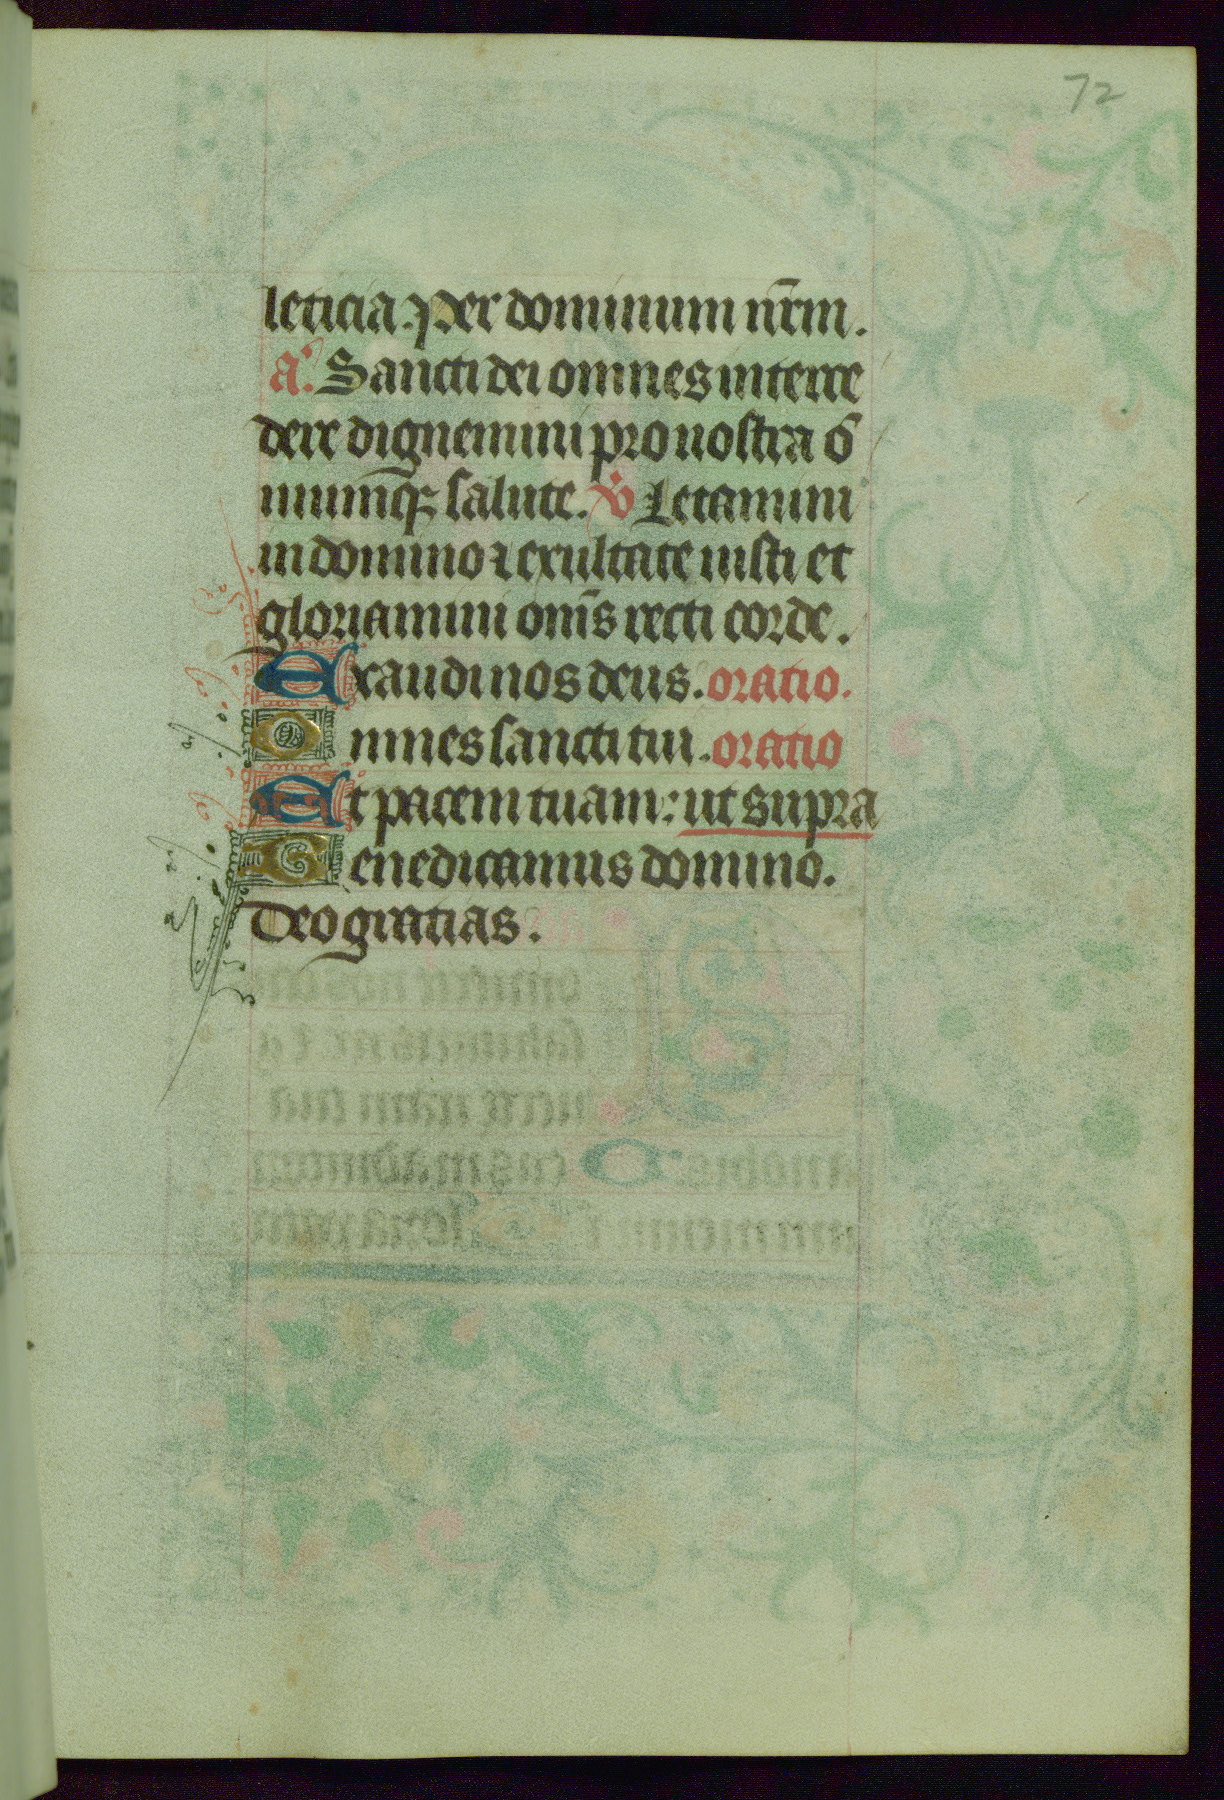 72
leticia. Per dominum nr̄m.
a. Sancti dei omnes interce
dere dignemini pro nostra o
mniumq̄ꝫ salute. v̊ Letamini
in domino ⁊ exultate iusti et
gloriamini om̄s recti corde.
Exaudi nos deus. oratio.
Omnes sancti tui. oratio
Et pacem tuam: ut supra
Benedicamus domino.
Deo gratias.